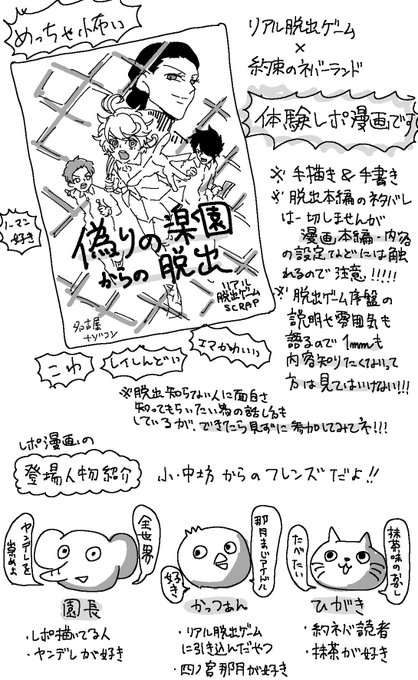 めっちゃ怖い
リアル脱出ゲーム
×
約束のネバーランド
体験レポ漫画です
※ 手描き&手書き
※ 脱出本編のネタバレ
は一切しませんが
漫画本編・内容
の設定などには触
れるので注意!!!!!
※ 脱出ゲーム序盤の
説明や雰囲気も
語るので1mmも
内容知りたくないって
方は見てはいけない!!!
ノーマン
好き
偽りの楽園
からの脱出
リアル
脱出ゲーム
SCRAP
名古屋
ナゾコン
こわ
レイしんどい
エマかわいい
※脱出知らない人に面白さ
知ってもらいたい為の話しも
しているが、できたら見ずに参加してみて
レポ漫画の
登場人物紹介
小・中坊からのフレンズだよ!!
ヤンデレを
崇めよ
全世界
園長
・レポ描いてる人
・ヤンデレが好き
好き
那月まじアイドル
かっつぁん
・リアル脱出ゲーム
に引き込んだやつ
・四ノ宮那月が好き
たべたい
抹茶味の蒸し
ひがき
・約ネバ読者
・抹茶が好き